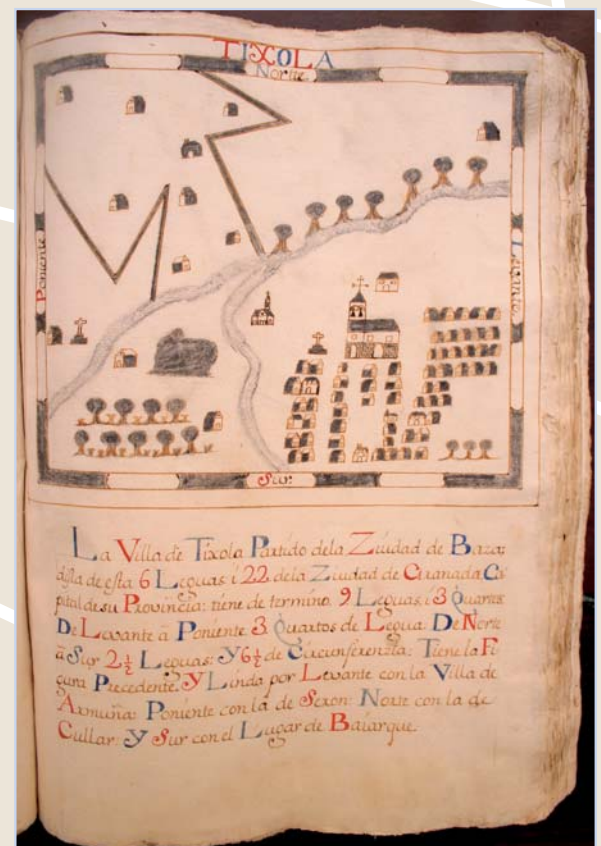 TIXOLA
Norte
Poniente
Levante
Sur
La Villa de Tixola Partido dela Ziudad de Baza;
dista de esta 6 Leguas i 22 dela Ziudad de Granada Ca
pital de su Provincia: tiene de termino 9 Leguas i 3 Quartos
De Levante â Poniente 3 Quartos de Legua: De Norte
â Sur 2½ Leguas: Y 6½ de Circunferenzia: Tiene la Fi
gura Precedente. Y Linda por Levante con la Villa de
Armuña: Poniente con la de Seron: Norte con la de
Cullar: Y Sur con el Lugar de Baiarque